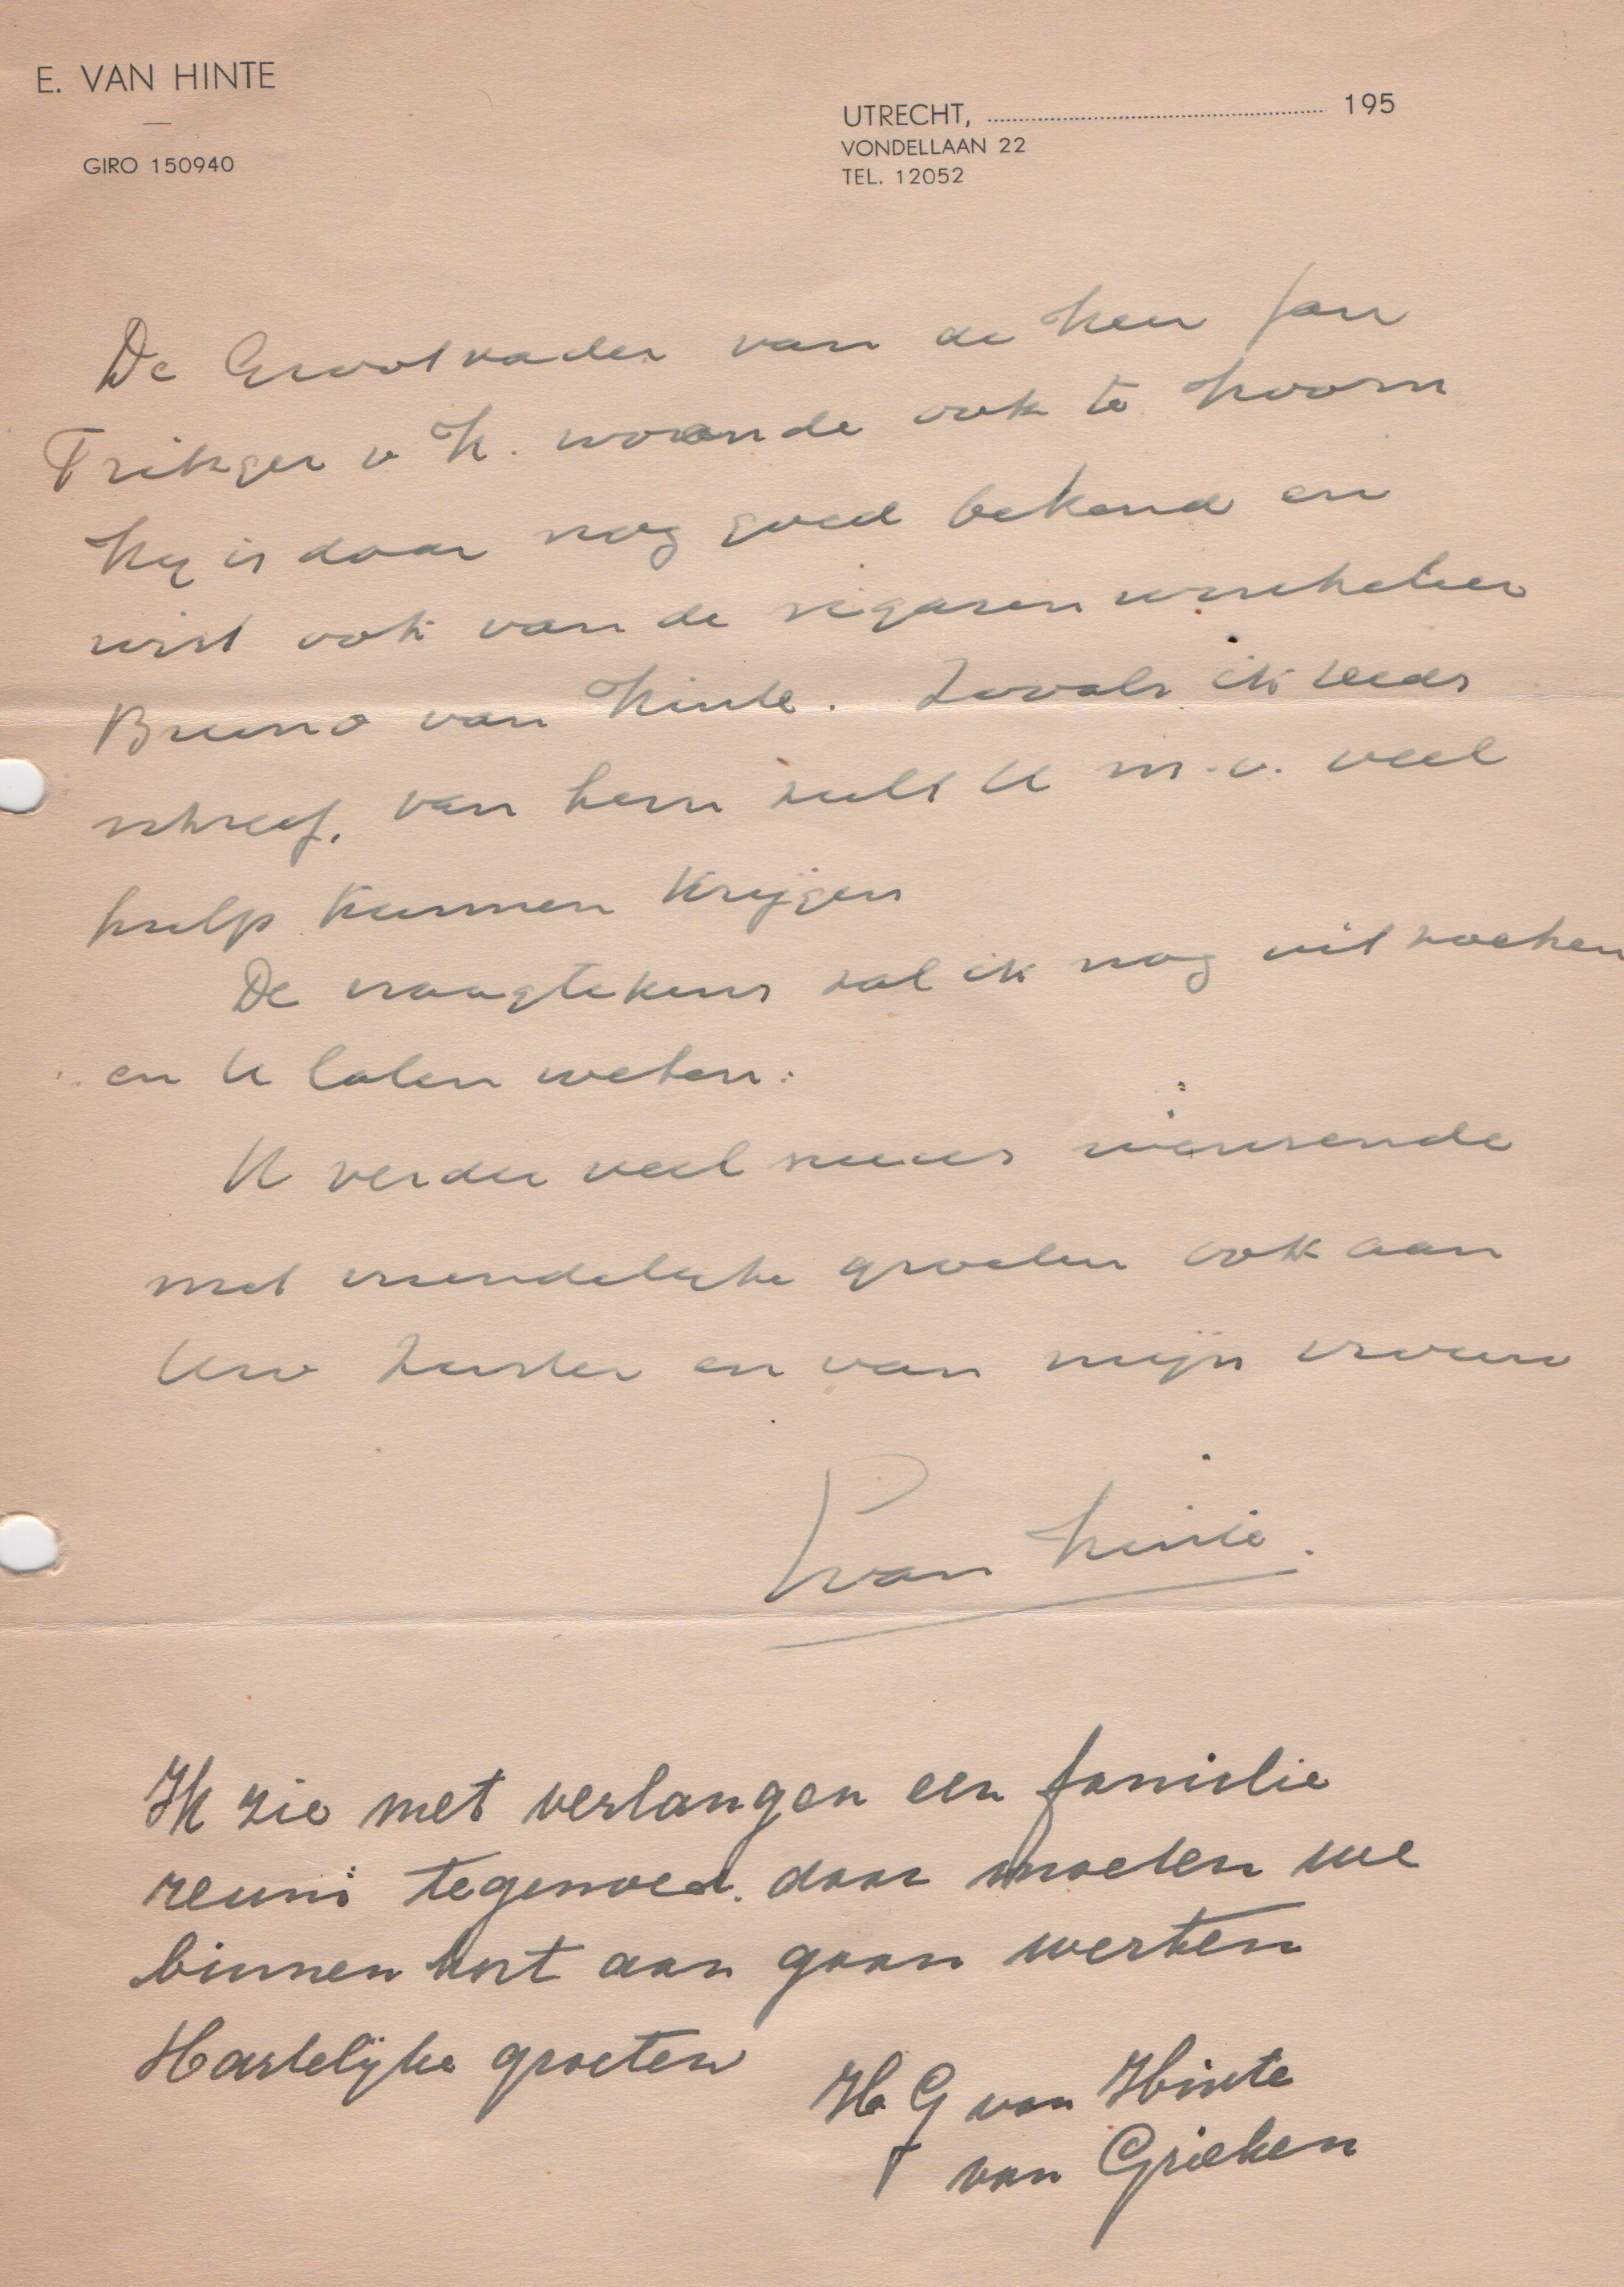 E. VAN HINTE
GIRO 150940
UTRECHT, 195
VONDELLAAN 22
TEL. 12052
De Grootvader van de Heer Jan
Fritsger v H. woonde ook te Hoorn
Hij is daar nog goed bekend en
wist ook van de sigarenwinkelier
Bruno van Hinte. Zooals ik reeds
schreef, van hem zult U m.i. veel
hulp kunnen krijgen
De vraagtekens zal ik nog uitzoeken
en U laten weten.
U verder veel succes wensende
met vriendelijke groeten ook aan
Uw Zuster en van mijn vrouw
van Hinte.
Ik zie met verlangen een familie
reuni tegemoed. daar moeten we
binnen kort aan gaan werken
Hartelijke groeten
H G van Hinte
van Grieken